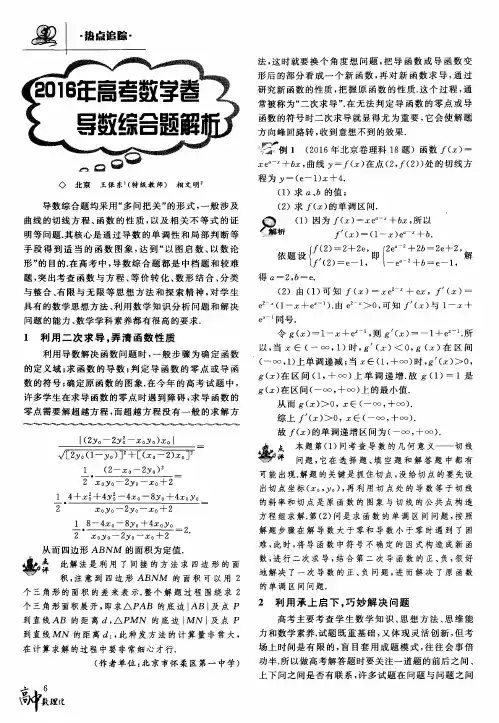 ·热点追踪·
2016年高考数学卷
导数综合题解析
◇ 北京 王保东¹(特级教师) 相文明²
导数综合题均采用“多问把关”的形式,一般涉及
曲线的切线方程、函数的性质,以及相关不等式的证
明等问题.其核心是通过导数的单调性和局部判断等
手段得到适当的函数图象,达到“以图启数、以数论
形”的目的.在高考中,导数综合题都是中档题和较难
题,突出考查函数与方程、等价转化、数形结合、分类
与整合、有限与无限等思想方法和探索精神,对学生
具有的数学思想方法、利用数学知识分析问题和解决
问题的能力、数学学科素养都有很高的要求.
1 利用二次求导,弄清函数性质
利用导数解决函数问题时,一般步骤为确定函数
的定义域;求函数的导数;判定导函数的零点或导函
数的符号;确定原函数的图象.在今年的高考试题中,
许多学生在求导函数的零点时遇到障碍,求导函数的
零点需要解超越方程,而超越方程没有一般的求解方
|(2y₀−2y₀²−x₀y₀)x₀|
√[2y₀(1−y₀)]²+[(x₀−2)x₀]² =
1/2 · (2−x₀−2y₀)²/(x₀y₀−2y₀−x₀+2) =
1/2 · (4+x₀²+4y₀²−4x₀−8y₀+4x₀y₀)/(x₀y₀−2y₀−x₀+2) =
1/2 · (8−4x₀−8y₀+4x₀y₀)/(x₀y₀−2y₀−x₀+2) =2.
从而四边形 ABNM 的面积为定值.
点评 此解法是利用了间接的方法求四边形的面
积,注意到四边形 ABNM 的面积可以用 2
个三角形的面积的差来表示.整个解题过程围绕求 2
个三角形面积展开,即求△PAB 的底边|AB|及点 P
到直线AB 的距离 d,△PMN 的底边|MN|及点 P
到直线MN 的距离d₁,此种发方法的计算量非常大,
在计算求解的过程中要非常细心才行.
(作者单位:北京市怀柔区第一中学)
法,这时就要换个角度想问题,把导函数或导函数变
形后的部分看成一个新函数,再对新函数求导,通过
研究新函数的性质,把握原函数的性质.这个过程,通
常被称为“二次求导”.在无法判定导函数的零点或导
函数的符号时二次求导就显得尤为重要,它会使解题
方向峰回路转,收到意想不到的效果.
例1 (2016年北京卷理科18题) 函数 f(x)=
xe^(a−x)+bx,曲线 y=f(x)在点(2,f(2))处的切线方
程为 y=(e−1)x+4.
(1) 求 a、b 的值;
(2) 求 f(x)的单调区间.
解析 (1) 因为 f(x)=xe^(a−x)+bx,所以
f′(x)=(1−x)e^(a−x)+b.
依题设{f(2)=2+2e, f′(2)=e−1, 即{2e^(a−2)+2b=2e+2, −e^(a−2)+b=e−1, 解
得 a=2,b=e.
(2) 由(1)可知 f(x)=xe^(2−x)+ex, f′(x)=
e^(2−x)(1−x+e^(x−1)).由 e^(2−x)>0,可知 f′(x)与 1−x+
e^(x−1)同号.
令 g(x)=1−x+e^(x−1),则 g′(x)=−1+e^(x−1).所
以,当 x∈(−∞,1)时,g′(x)<0,g(x)在区间
(−∞,1)上单调递减;当 x∈(1,+∞)时,g′(x)>0,
g(x)在区间(1,+∞)上单调递增.故 g(1)=1 是
g(x)在区间(−∞,+∞)上的最小值.
从而 g(x)>0, x∈(−∞,+∞).
综上 f′(x)>0, x∈(−∞,+∞).
故 f(x)的单调递增区间为(−∞,+∞).
点评 本题第(1)问考查导数的几何意义——切线
问题,它在选择题、填空题和解答题中都有
可能出现.解题的关键是抓住切点,没给切点的要先设
出切点坐标(x₀,y₀),再利用切点处的导数等于切线
的斜率和切点是原函数的图象与切线的公共点构造
方程组求解.第(2)问是求函数的单调区间问题,按照
解题步骤在解导数大于零和导数小于零时遇到了困
难,此时,将导函数中符号不确定的因式构造成新函
数,进行二次求导,结合第二次导函数的正、负,很好
地解决了一次导数的正、负问题,进而解决了原函数
的单调区间问题.
2 利用承上启下,巧妙解决问题
高考主要考查学生数学知识、思想方法、思维能
力和数学素养.试题既重基础,又体现灵活创新,但考
场上时间是有限的,盲目套用成题模式,往往会事倍
功半.所以做高考解答题时要关注一道题的前后之间、
上下问之间是否有联系,许多试题在问题与问题之间
6
高中数理化